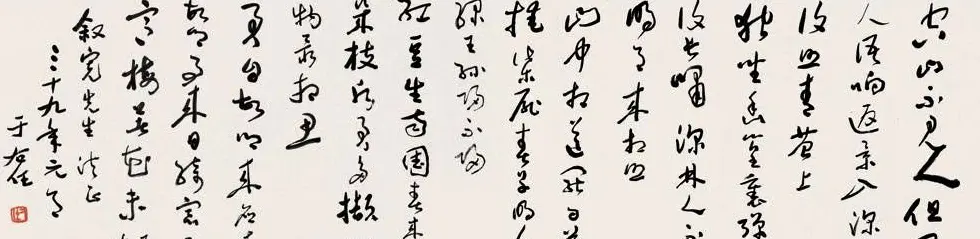 空山不見人但
人語响返景入深
復照青苔上
獨坐幽篁裏彈
復長嘯深林人不
明月來相照
山中相送罷日暮
掩柴扉春草明年
綠王孫歸不歸
紅豆生南國春來
幾枝願君多擷
物最相思
君自故鄉來應
故鄉事來日綺窗
寒梅著花未
叙完先生法正
三十九年元月
于右任